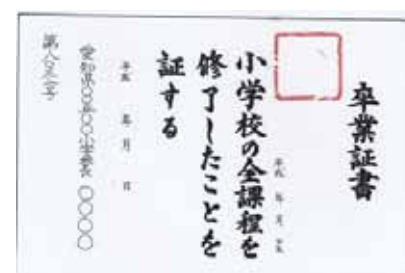 卒業証書
平成 年 月 日生
小学校の全課程を
修了したことを
証する
平成 年 月 日
愛知県〇〇市〇〇小学校長 〇〇〇〇